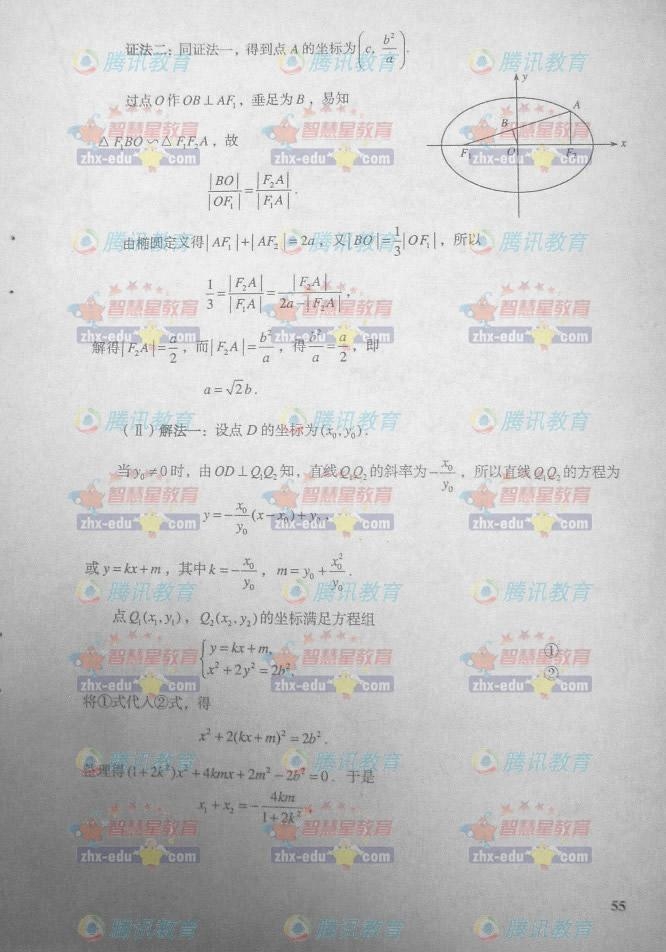 证法二：同证法一，得到点 A 的坐标为(c, b²/a).
过点 O 作 OB⊥AF₁，垂足为 B，易知
△F₁BO∽△F₁F₂A，故
|BO|/|OF₁| = |F₂A|/|F₁A|.
y
A
B
F₁
O
F₂
x
由椭圆定义得|AF₁|+|AF₂|=2a，又|BO|=1/3|OF₁|，所以
1/3 = |F₂A|/|F₁A| = |F₂A|/(2a-|F₂A|)，
解得|F₂A|=a/2，而|F₂A|=b²/a，得b²/a=a/2，即
a=√2b.
(Ⅱ)解法一：设点 D 的坐标为(x₀, y₀).
当y₀≠0时，由OD⊥Q₁Q₂知，直线Q₁Q₂的斜率为-x₀/y₀，所以直线Q₁Q₂的方程为
y=-x₀/y₀(x-x₀)+y₀，
或y=kx+m，其中k=-x₀/y₀，m=y₀+x₀²/y₀.
点Q₁(x₁,y₁)，Q₂(x₂,y₂)的坐标满足方程组
{y=kx+m, ①
x²+2y²=2b². ②
将①式代入②式，得
x²+2(kx+m)²=2b².
整理得(1+2k²)x²+4kmx+2m²-2b²=0．于是
x₁+x₂=-4km/(1+2k²)，
55
腾讯教育
智慧星教育
zhx-edu com